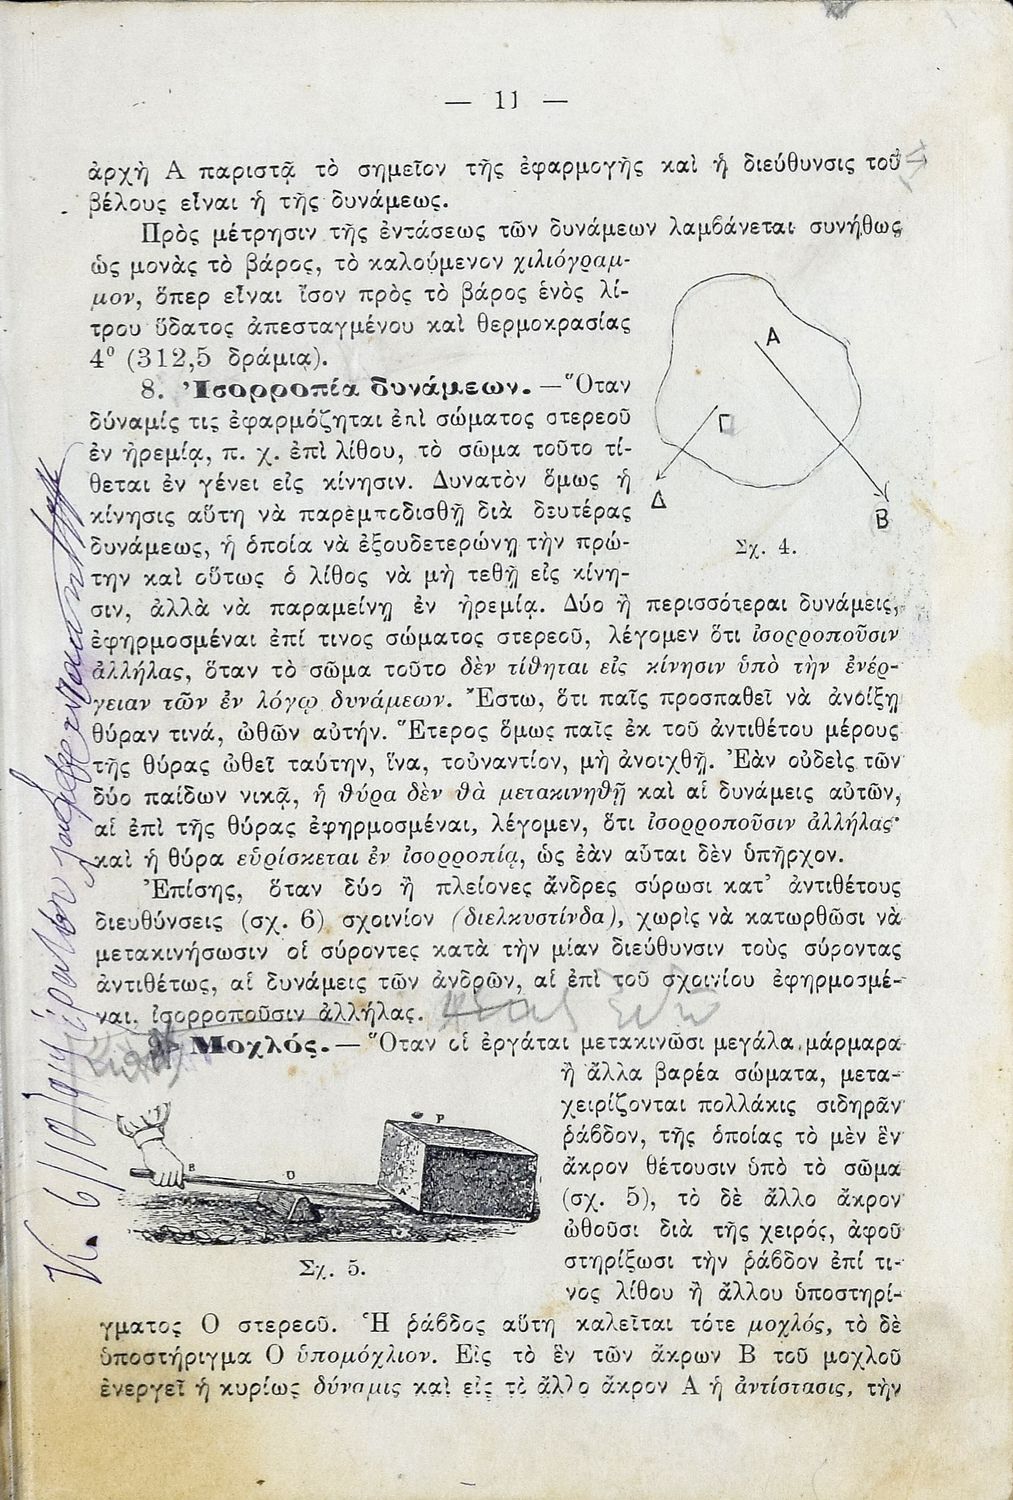 — 11 —
ἀρχὴ Α παριστᾷ τὸ σημεῖον τῆς ἐφαρμογῆς καὶ ἡ διεύθυνσις τοῦ
βέλους εἶναι ἡ τῆς δυνάμεως.
Πρὸς μέτρησιν τῆς ἐντάσεως τῶν δυνάμεων λαμβάνεται συνήθως
ὡς μονὰς τὸ βάρος, τὸ καλούμενον χιλιόγραμ-
μον, ὅπερ εἶναι ἴσον πρὸς τὸ βάρος ἑνὸς λί-
τρου ὕδατος ἀπεσταγμένου καὶ θερμοκρασίας
4⁰ (312,5 δράμια).
8. Ἰσορροπία δυνάμεων. — Ὅταν
δύναμίς τις ἐφαρμόζηται ἐπὶ σώματος στερεοῦ
ἐν ἠρεμίᾳ, π. χ. ἐπὶ λίθου, τὸ σῶμα τοῦτο τί-
θεται ἐν γένει εἰς κίνησιν. Δυνατὸν ὅμως ἡ
κίνησις αὕτη νὰ παρεμποδισθῇ διὰ δευτέρας
δυνάμεως, ἡ ὁποία νὰ ἐξουδετερώνῃ τὴν πρώ-
την καὶ οὕτως ὁ λίθος νὰ μὴ τεθῇ εἰς κίνη-
σιν, ἀλλὰ νὰ παραμείνῃ ἐν ἠρεμίᾳ. Δύο ἢ περισσότεραι δυνάμεις,
ἐφηρμοσμέναι ἐπί τινος σώματος στερεοῦ, λέγομεν ὅτι ἰσορροποῦσιν
ἀλλήλας, ὅταν τὸ σῶμα τοῦτο δὲν τίθηται εἰς κίνησιν ὑπὸ τὴν ἐνέρ-
γειαν τῶν ἐν λόγῳ δυνάμεων. Ἔστω, ὅτι παῖς προσπαθεῖ νὰ ἀνοίξῃ
θύραν τινά, ὠθῶν αὐτήν. Ἕτερος ὅμως παῖς ἐκ τοῦ ἀντιθέτου μέρους
τῆς θύρας ὠθεῖ ταύτην, ἵνα, τοὐναντίον, μὴ ἀνοιχθῇ. Ἐὰν οὐδεὶς τῶν
δύο παίδων νικᾷ, ἡ θύρα δὲν θὰ μετακινηθῇ καὶ αἱ δυνάμεις αὐτῶν,
αἱ ἐπὶ τῆς θύρας ἐφηρμοσμέναι, λέγομεν, ὅτι ἰσορροποῦσιν ἀλλήλας·
καὶ ἡ θύρα εὑρίσκεται ἐν ἰσορροπίᾳ, ὡς ἐὰν αὗται δὲν ὑπῆρχον.
Ἐπίσης, ὅταν δύο ἢ πλείονες ἄνδρες σύρωσι κατ' ἀντιθέτους
διευθύνσεις (σχ. 6) σχοινίον (διελκυστίνδα), χωρὶς νὰ κατωρθῶσι νὰ
μετακινήσωσιν οἱ σύροντες κατὰ τὴν μίαν διεύθυνσιν τοὺς σύροντας
ἀντιθέτως, αἱ δυνάμεις τῶν ἀνδρῶν, αἱ ἐπὶ τοῦ σχοινίου ἐφηρμοσμέ-
ναι, ἰσορροποῦσιν ἀλλήλας.
9. Μοχλός. — Ὅταν οἱ ἐργάται μετακινῶσι μεγάλα μάρμαρα
ἢ ἄλλα βαρέα σώματα, μετα-
χειρίζονται πολλάκις σιδηρᾶν
ῥάβδον, τῆς ὁποίας τὸ μὲν ἓν
ἄκρον θέτουσιν ὑπὸ τὸ σῶμα
(σχ. 5), τὸ δὲ ἄλλο ἄκρον
ὠθοῦσι διὰ τῆς χειρός, ἀφοῦ
στηρίξωσι τὴν ῥάβδον ἐπί τι-
νος λίθου ἢ ἄλλου ὑποστηρί-
γματος Ο στερεοῦ. Ἡ ῥάβδος αὕτη καλεῖται τότε μοχλός, τὸ δὲ
ὑποστήριγμα Ο ὑπομόχλιον. Εἰς τὸ ἓν τῶν ἄκρων Β τοῦ μοχλοῦ
ἐνεργεῖ ἡ κυρίως δύναμις καὶ εἰς τὸ ἄλλο ἄκρον Α ἡ ἀντίστασις, τὴν
Α
Γ
Δ
Β
Σχ. 4.
P
B
O
A
Σχ. 5.